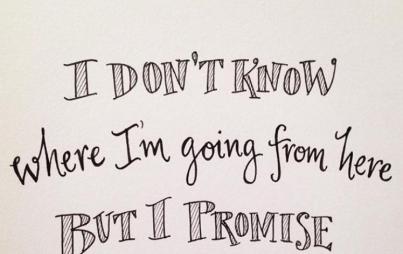 I DON'T KNOW
where I'm going from here
BUT I PROMISE